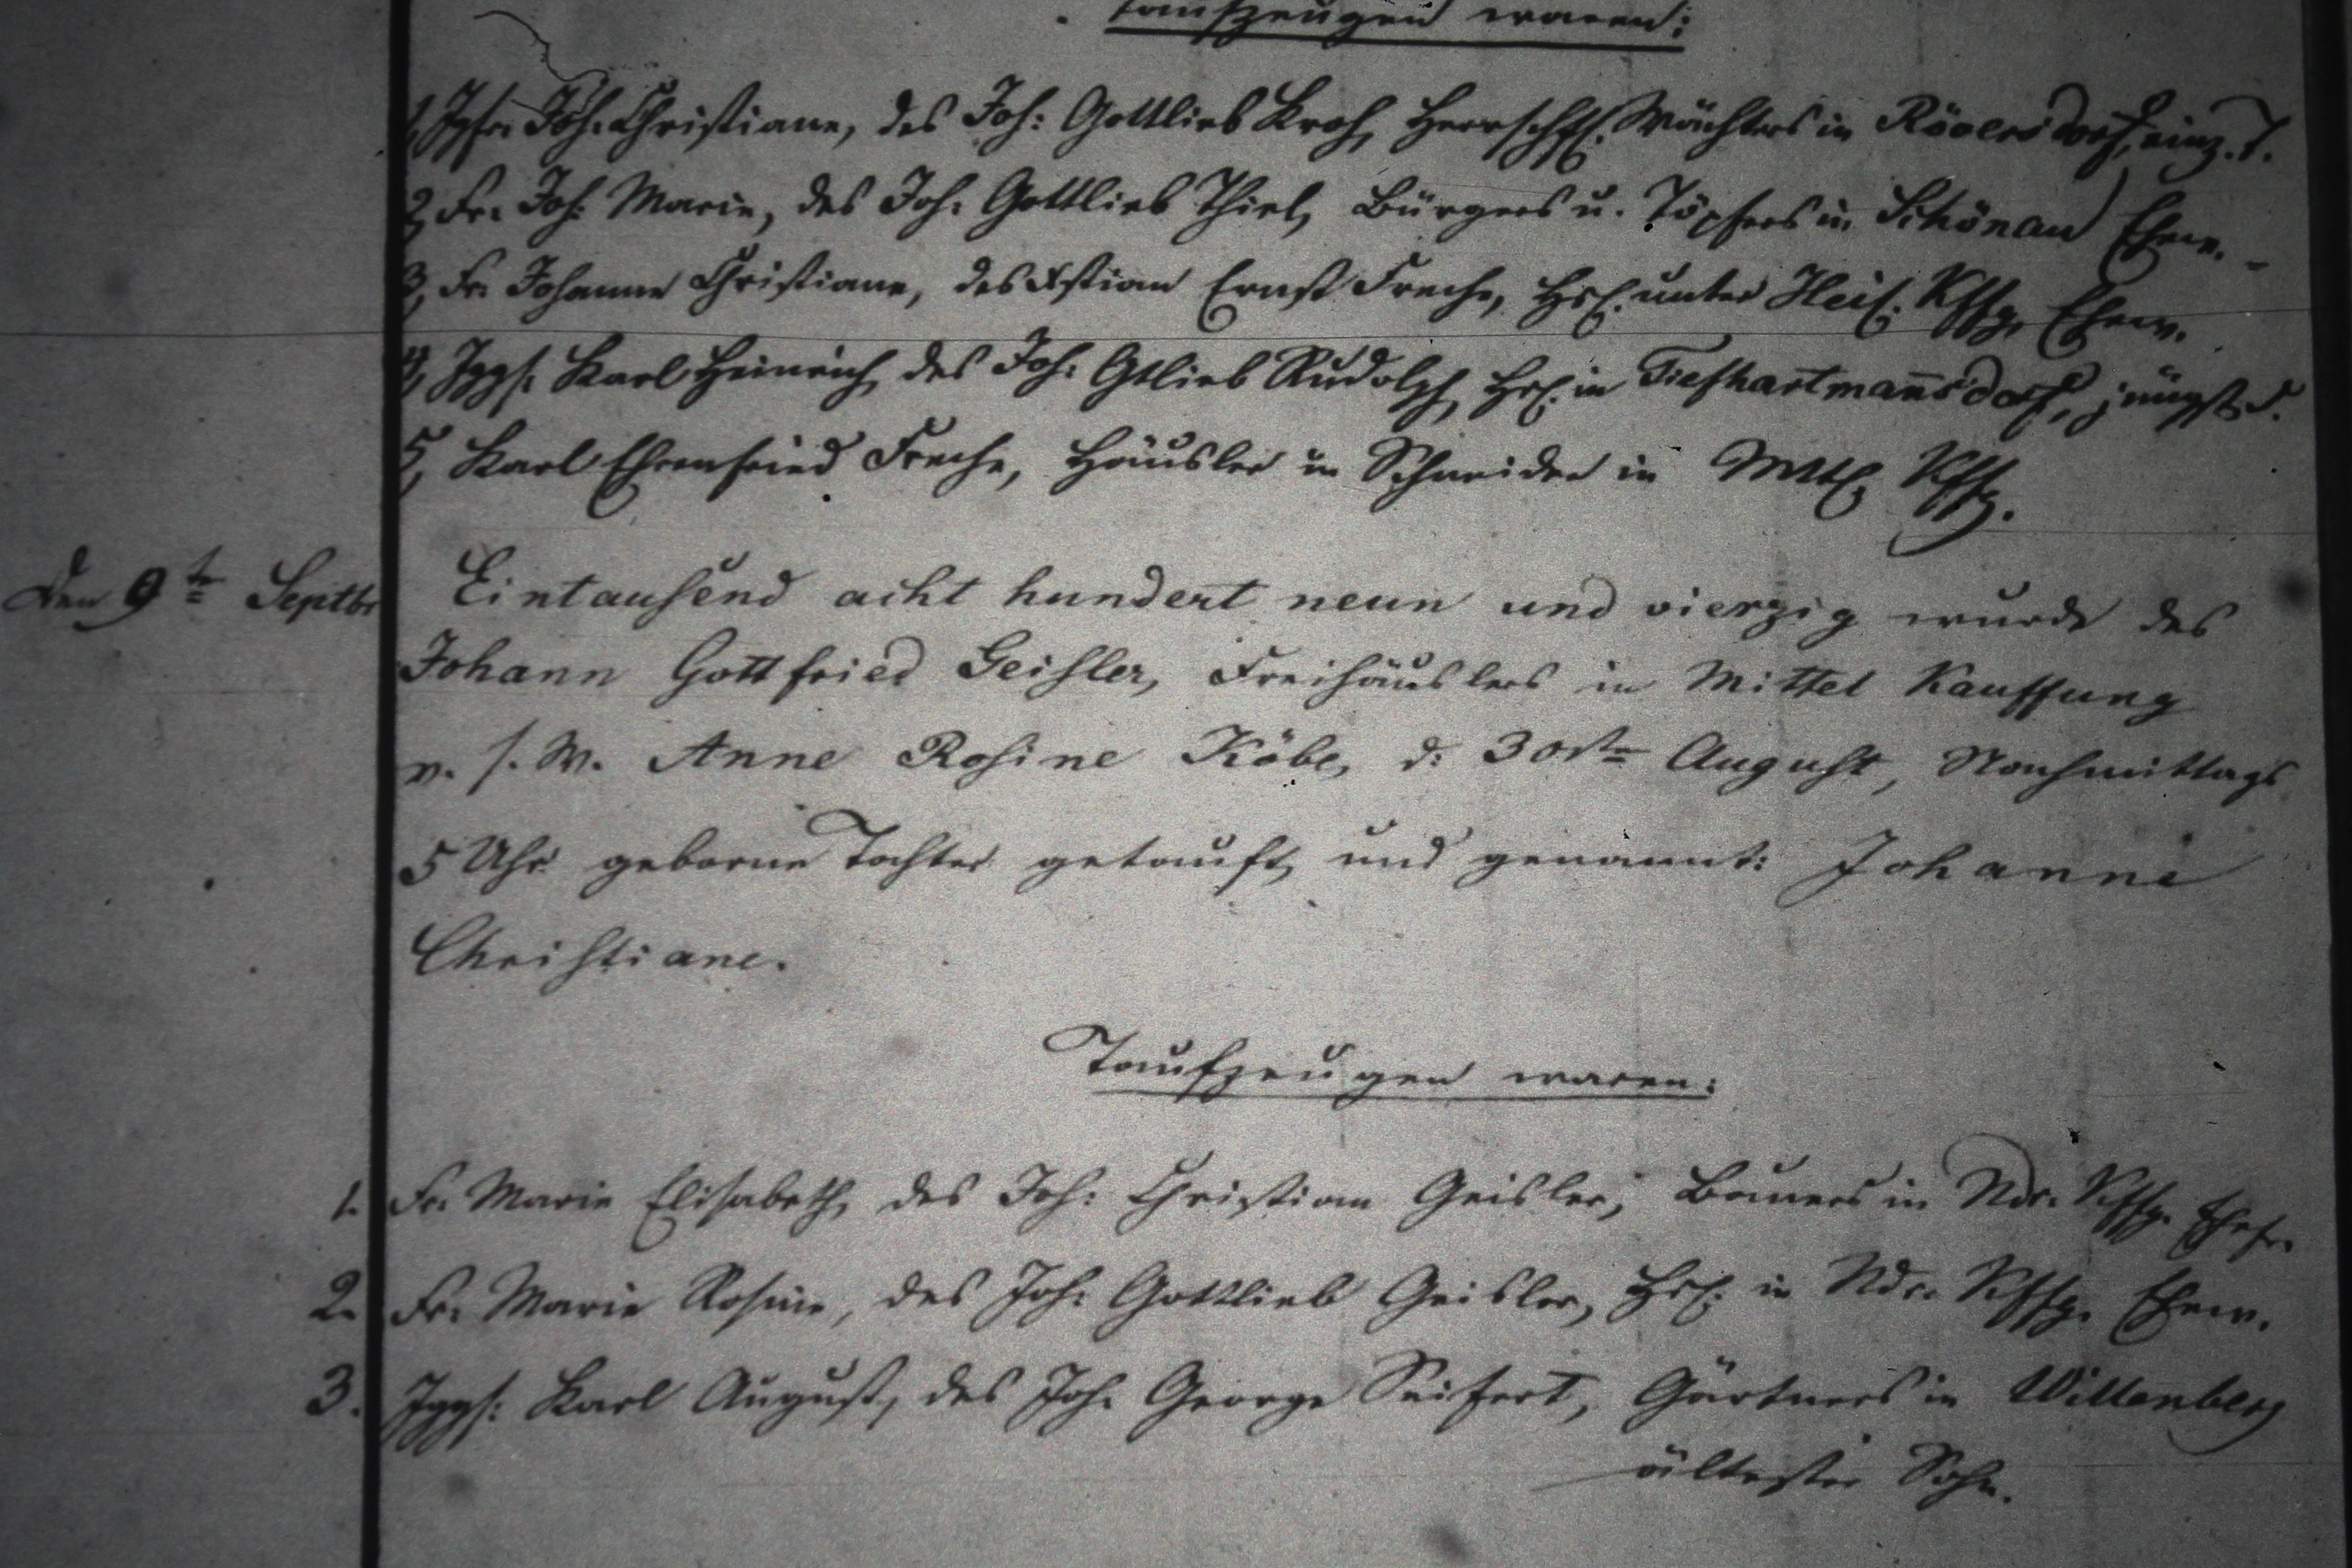 Taufzeugen waren:
1, Jgfr. Joh: Christiane, des Joh: Gottlieb Kroh, Herrschftl. Wächters in Röversdorf, einz. T.
2, Fr. Joh: Marie, des Joh: Gottlieb Thiel, Bürgers u. Töpfers in Schönau Ehew.
3, Fr. Johanne Christiane, des Xstian Ernst Freche, Hsl. unter Heil. Kffg. Ehew.
4, Jggs. Karl Heinrich, des Joh: Gtlieb Rudolph, Hsl. in Tiefhartmannsdorf, jüngst. S.
5, Karl Ehrenfried Freche, Häusler u Schneider in Mttl. Kffg.
Den 9te Septbr Eintausend acht hundert neun und vierzig wurde des
Johann Gottfried Geisler, Freihäuslers in Mittel Kauffung
v. s. W. Anne Rosine Köbe, d: 30ste August, Nachmittags
5 Uhr geborne Tochter getauft, und genannt: Johanne
Christiane.
Taufzeugen waren:
1. Fr. Marie Elisabeth, des Joh: Christian Geisler, Bauers in Ndr. Kffg. Ehefr.
2. Fr. Marie Rosine, des Joh: Gottlieb Geisler, Hsl. in Ndr. Kffg. Ehew.
3. Jggs: Karl August, des Joh. George Seifert, Gärtners in Willenberg
ältester Sohn.